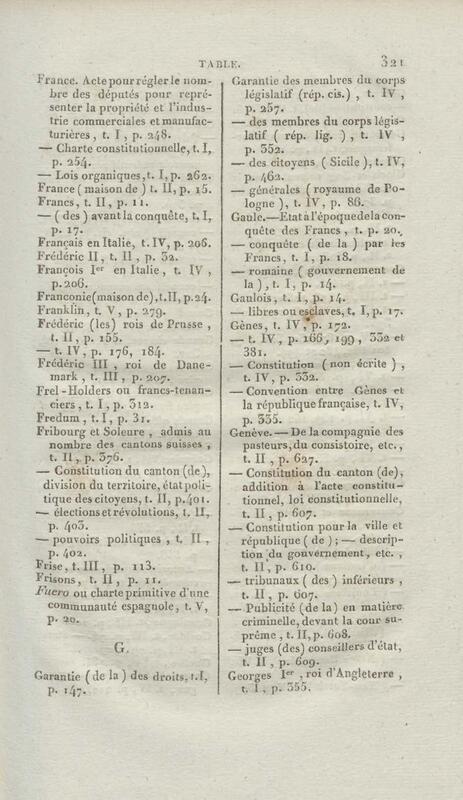 TABLE. 321
France. Acte pour régler le nom-
bre des députés pour repré-
senter la propriété et l'indus-
trie commerciales et manufac-
turières, t. I, p. 248.
— Charte constitutionnelle, t. I,
p. 254.
— Lois organiques, t. I, p. 262.
France (maison de) t. II, p. 15.
Francs, t. II, p. 11.
— (des) avant la conquête, t. I,
p. 17.
Français en Italie, t. IV, p. 206.
Frédéric II, t. II, p. 32.
François Ier en Italie, t. IV,
p. 206.
Franconie (maison de), t. II, p. 24.
Franklin, t. V, p. 279.
Frédéric (les) rois de Prusse,
t. II, p. 155.
— t. IV, p. 176, 184.
Frédéric III, roi de Dane-
mark, t. III, p. 207.
Frel-Holders ou francs-tenan-
ciers, t. I, p. 312.
Fredum, t. I, p. 31.
Fribourg et Soleure, admis au
nombre des cantons suisses,
t. II, p. 376.
— Constitution du canton (de),
division du territoire, état poli-
tique des citoyens, t. II, p. 401.
— élections et révolutions, t. II,
p. 403.
— pouvoirs politiques, t. II,
p. 402.
Frise, t. III, p. 113.
Frisons, t. II, p. 11.
Fuero ou charte primitive d'une
communauté espagnole, t. V,
p. 20.
G.
Garantie (de la) des droits, t. I,
p. 147.
Garantie des membres du corps
législatif (rép. cis.), t. IV,
p. 257.
— des membres du corps légis-
latif (rép. lig.), t. IV,
p. 352.
— des citoyens (Sicile), t. IV,
p. 462.
— générales (royaume de Po-
logne), t. IV, p. 86.
Gaule. — Etat à l'époque de la con-
quête des Francs, t. p. 20.
— conquête (de la) par les
Francs, t. I, p. 18.
— romaine (gouvernement de
la), t. I, p. 14.
Gaulois, t. I, p. 14.
— libres ou esclaves, t. I, p. 17.
Gênes, t. IV, p. 172.
— t. IV, p. 166, 199, 332 et
381.
— Constitution (non écrite),
t. IV, p. 332.
— Convention entre Gênes et
la république française, t. IV,
p. 335.
Genève. — De la compagnie des
pasteurs, du consistoire, etc.,
t. II, p. 627.
— Constitution du canton (de),
addition à l'acte constitu-
tionnel, loi constitutionnelle,
t. II, p. 607.
— Constitution pour la ville et
république (de); — descrip-
tion du gouvernement, etc.,
t. II, p. 610.
— tribunaux (des) inférieurs,
t. II, p. 607.
— Publicité (de la) en matière
criminelle, devant la cour su-
prême, t. II, p. 608.
— juges (des) conseillers d'état,
t. II, p. 609.
Georges Ier, roi d'Angleterre,
t. I, p. 355.